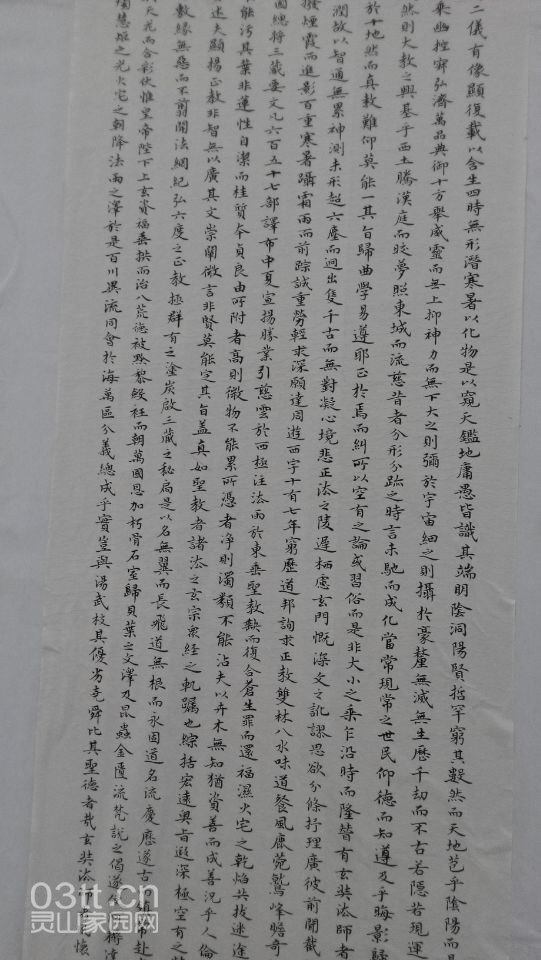 二儀有像顯復載以含生四時無形潛寒暑以化物是以窺天鑑地庸愚皆識其端明陰洞陽賢哲罕窮其數然而天地苞乎陰陽而易
乘幽控寂弘濟萬品典御十方舉威靈而無上抑神力而無下大之則彌於宇宙細之則攝於豪釐無滅無生歷千劫而不古若隱若現運
然則大教之興基乎西土騰漢庭而皎夢照東域而流慈昔者分形分跡之時言未馳而成化當常現常之世民仰德而知遵及乎晦影歸
於十地然而真教難仰莫能一其旨歸曲學易遵耶正於焉而糾所以空有之論或習俗而是非大小之乘乍沿時而隆替有玄奘法師者
潤故以智通無累神測未形超六塵而迥出隻千古而無對凝心境悲正法之陵遲栖慮玄門慨深文之訛謬思欲分條抒理廣彼前聞截
撥煙霞而進影百重寒暑躡霜雨而前踪誠重勞輕求深願達周遊西宇十有七年窮歷道邦詢求正教雙林八水味道餐風鹿菀鷲峰瞻奇
國總將三藏要文凡六百五十七部譯布中夏宣揚勝業引慈雲於西極注法雨於東垂聖教缺而復合蒼生罪而還福濕火宅之乾焰共拔迷途
能污其葉非蓮性自潔而桂質本貞良由所附者高則微物不能累所憑者净則濁類不能沾夫以卉木無知猶資善而成善況乎人倫
述夫顯揚正教非智無以廣其文崇闡微言非賢莫能定其旨盖真如聖教者諸法之玄宗衆經之軌躅也綜括宏遠奧旨遐深極空有之
數緣無惡而不剪開法網紀弘六度之正教拯群有之塗炭啟三藏之秘扃是以名無翼而長飛道無根而永固道名流慶歷遂古而鎮常赴
天光而合彩伏惟皇帝陛下上玄資福垂拱而治八荒德被黔黎斂衽而朝萬國恩加朽骨石室歸貝葉之文澤及昆蟲金匱流梵說之偈遂使阿耨達
燭慧炬之光火宅之朝降法雨之澤於是百川異流同會於海萬區分義總成乎實豈與湯武校其優劣堯舜比其聖德者哉玄奘法師者夙懷
03tt.cn
灵山家园网